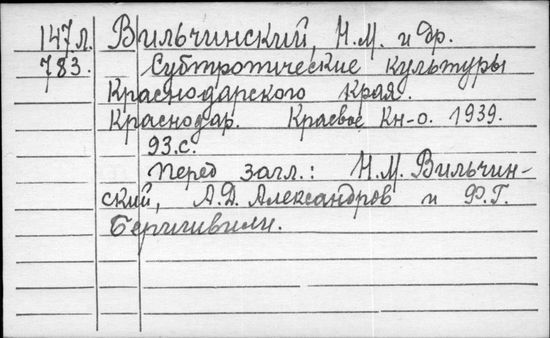 147л. Вильчинский, Н.М. и др.
783. Субтропические культуры
Краснодарского края.
Краснодар. Краевое кн-о. 1939.
93 с.
Перед загл.: Н.М. Вильчин-
ский, А.Д. Александров и Ф.Г.